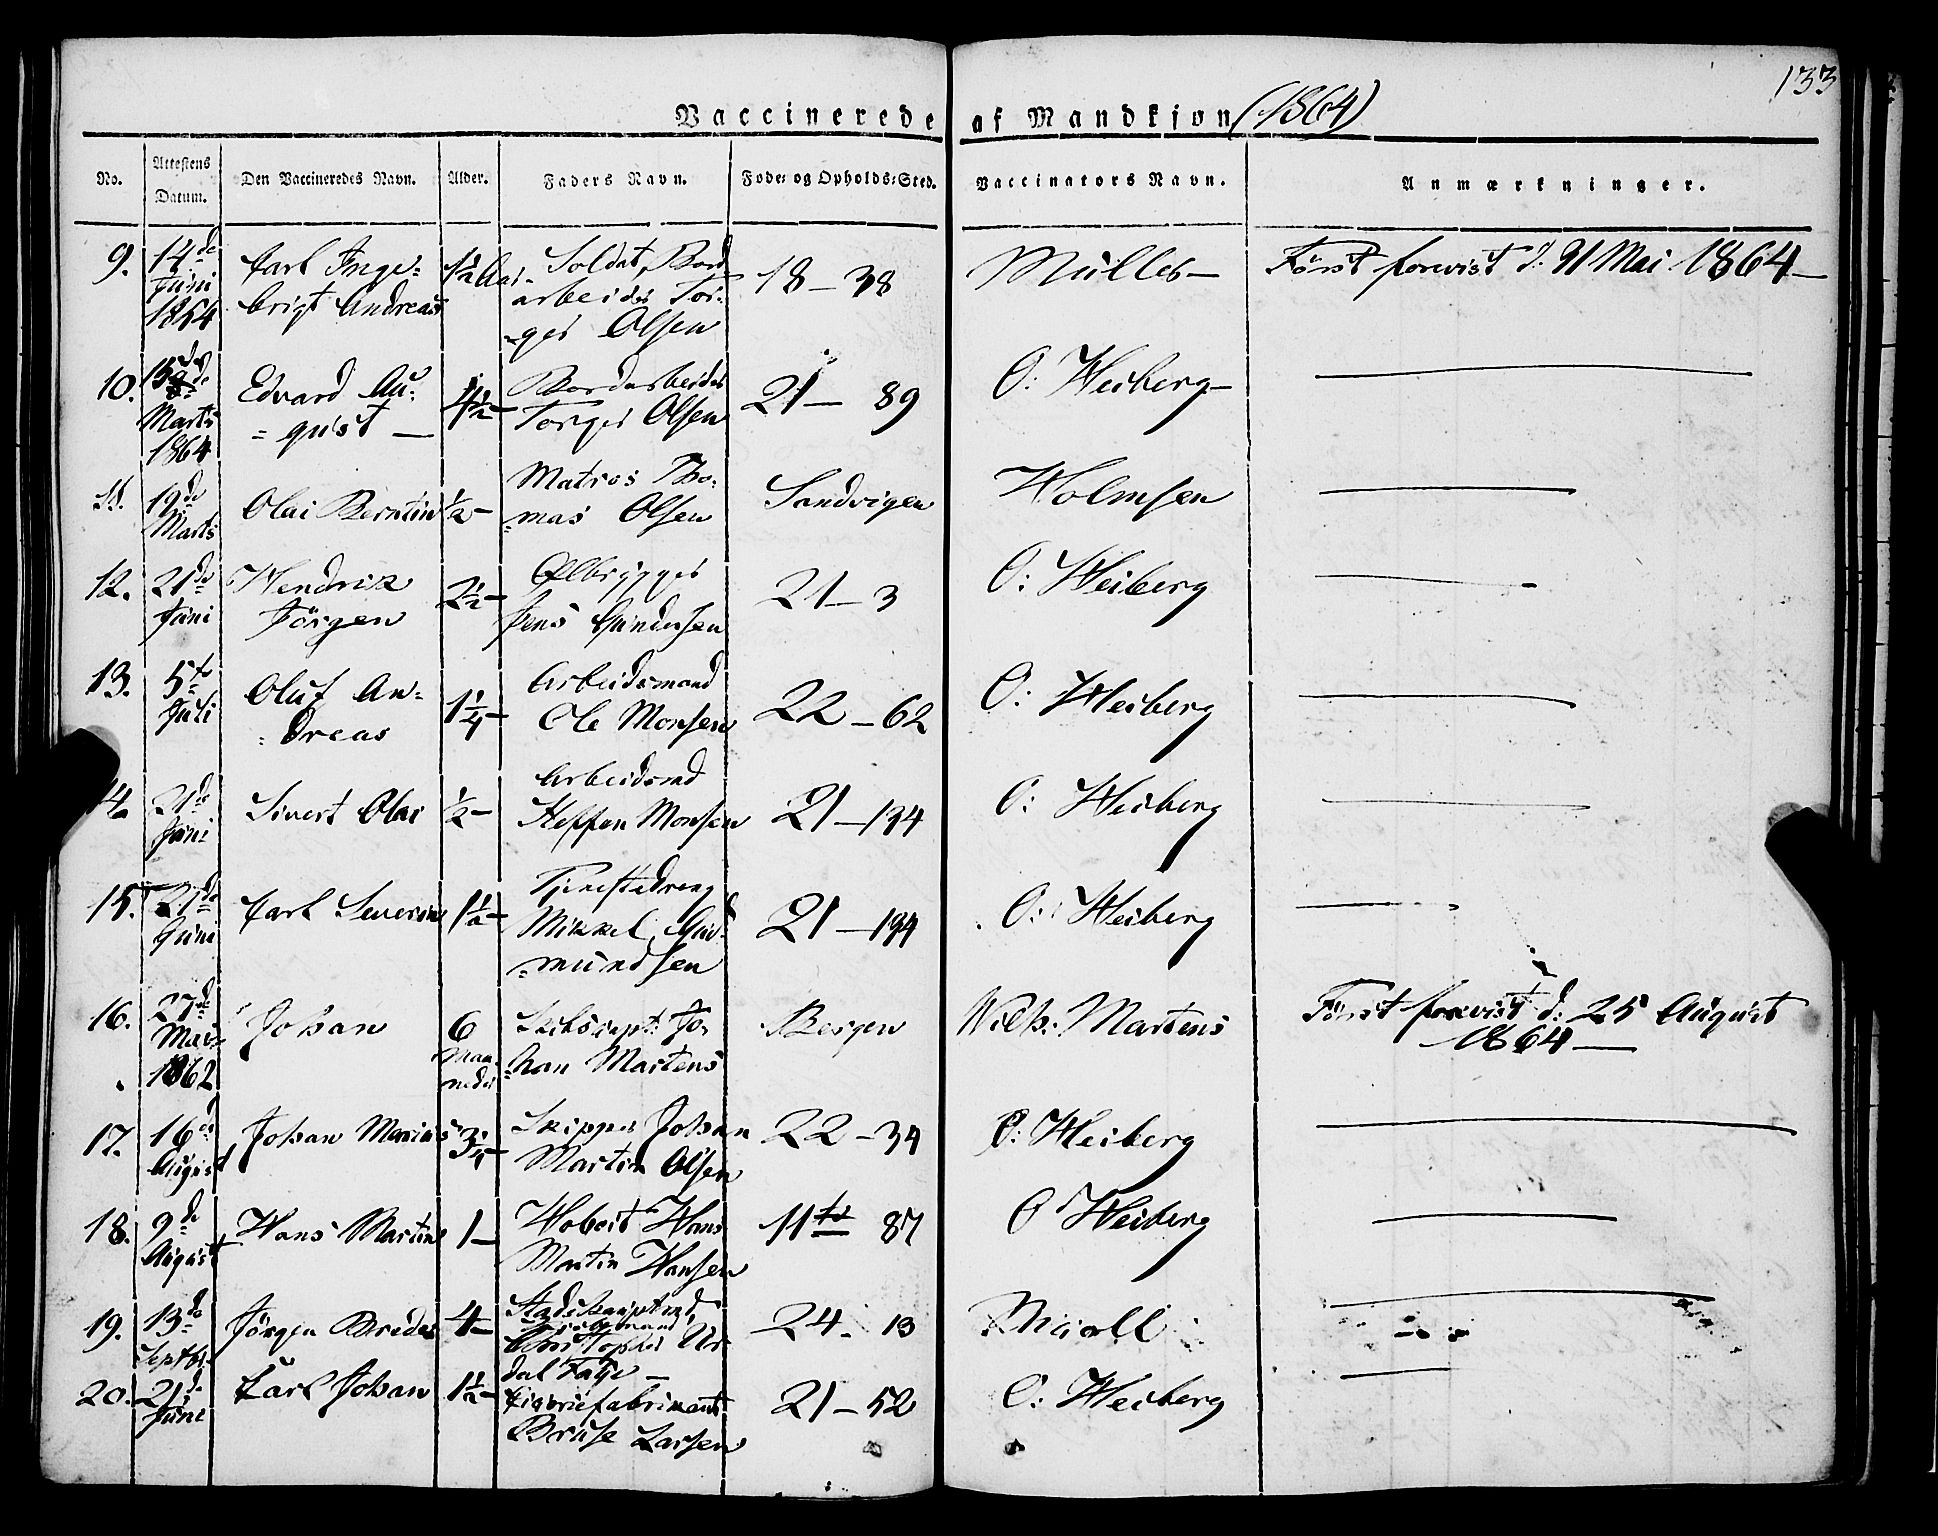 133
Vaccinerede af Mandkjøn (1864)
No. Attestens Datum. Den Vaccineredes Navn. Alder. Faders Navn. Føde- og Opholds-Sted. Vaccinators Navn. Anmærkninger.
9. 14de Juni 1864 Carl Inge= brigt Andreas 1½ Aar Soldat, Bord arbeider Tor= ger Olsen 18 – 38 Müller – Først forevist d: 31 Mai 1864 –
10. Marts 1864 Edvard Au= =gust — 4½ – Bordarbeider Torger Olsen 21 – 89 O: Heiberg –
11. 19de Marts Olai Berntin ½ – Matros Tho= =mas Olsen Sandvigen Holmsen
12. 21de Juni Hendrik Jörgen 2½ – Ølbrygger Jens Gundersen 21 – 3 O: Heiberg
13. 5te Juli Oluf An= =dreas 1¼ – Arbeidsmand Ole Monsen 22 – 62 O: Heiberg
14. 21de Juni Sivert Olai ½ – Arbeidsmd Steffen Monsen 21 – 134 O: Heiberg
15. 21de Juni Carl Severin 1½ – Tjenestedreng Mikkel Gud= =mundsen 21 – 194 O: Heiberg
16. 27de Mai 1862 Johan 6 Maa= neder Skibscapt: Jo= =han Martens Bergen Wilh: Martens Først forevist d: 25 August 1864 —
17. 16de August Johan Marius 3¼ – Skipper Johan Martin Olsen 22 – 34 O: Heiberg
18. 9de August Hans Martin 1 – Hans Martin Hansen 11te 87 O Heiberg
19. 13de Septbr Jörgen Breder 4 – Christopher Ur= dal Fasje – 24. 13
20. 21de Juni Carl Johan 1½ – Cigariefabrikant Bruse Larsen 21 – 52 O: Heiberg